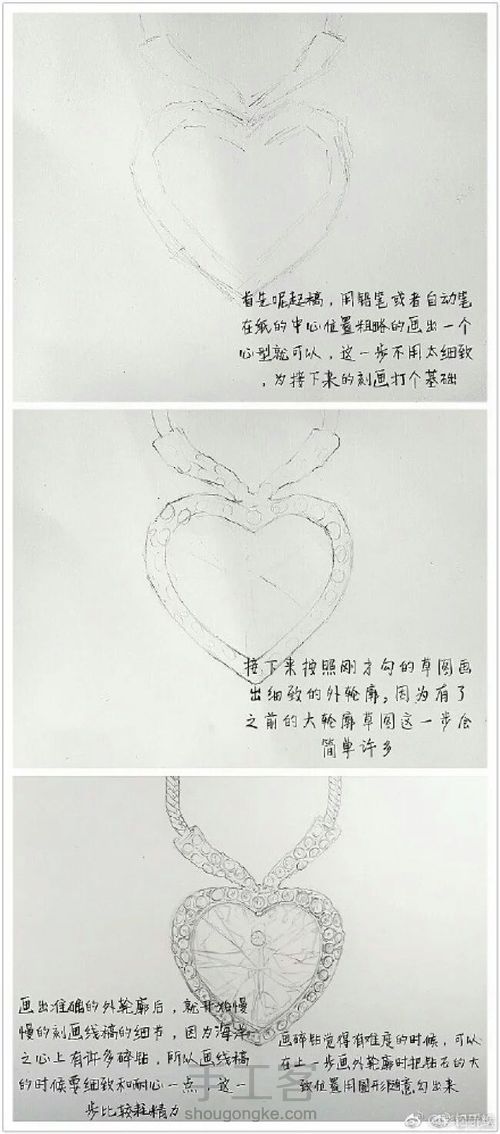 首先呢起稿，用铅笔或者自动笔
在纸的中心位置粗略的画出一个
心型就可以，这一步不用太细致
，为接下来的刻画打个基础
接下来按照刚才勾的草图画
出细致的外轮廓，因为有了
之前的大轮廓草图这一步会
简单许多
画出准确的外轮廓后，就开始慢
慢的刻画线稿的细节，因为海洋
之心上有许多碎钻，所以画线稿
的时候要细致和耐心一点，这一
步比较耗精力
画碎钻觉得有难度的时候，可以
在上一步画外轮廓时把钻石的大
致位置用圆形随意勾出来
手工客
shougongke.com